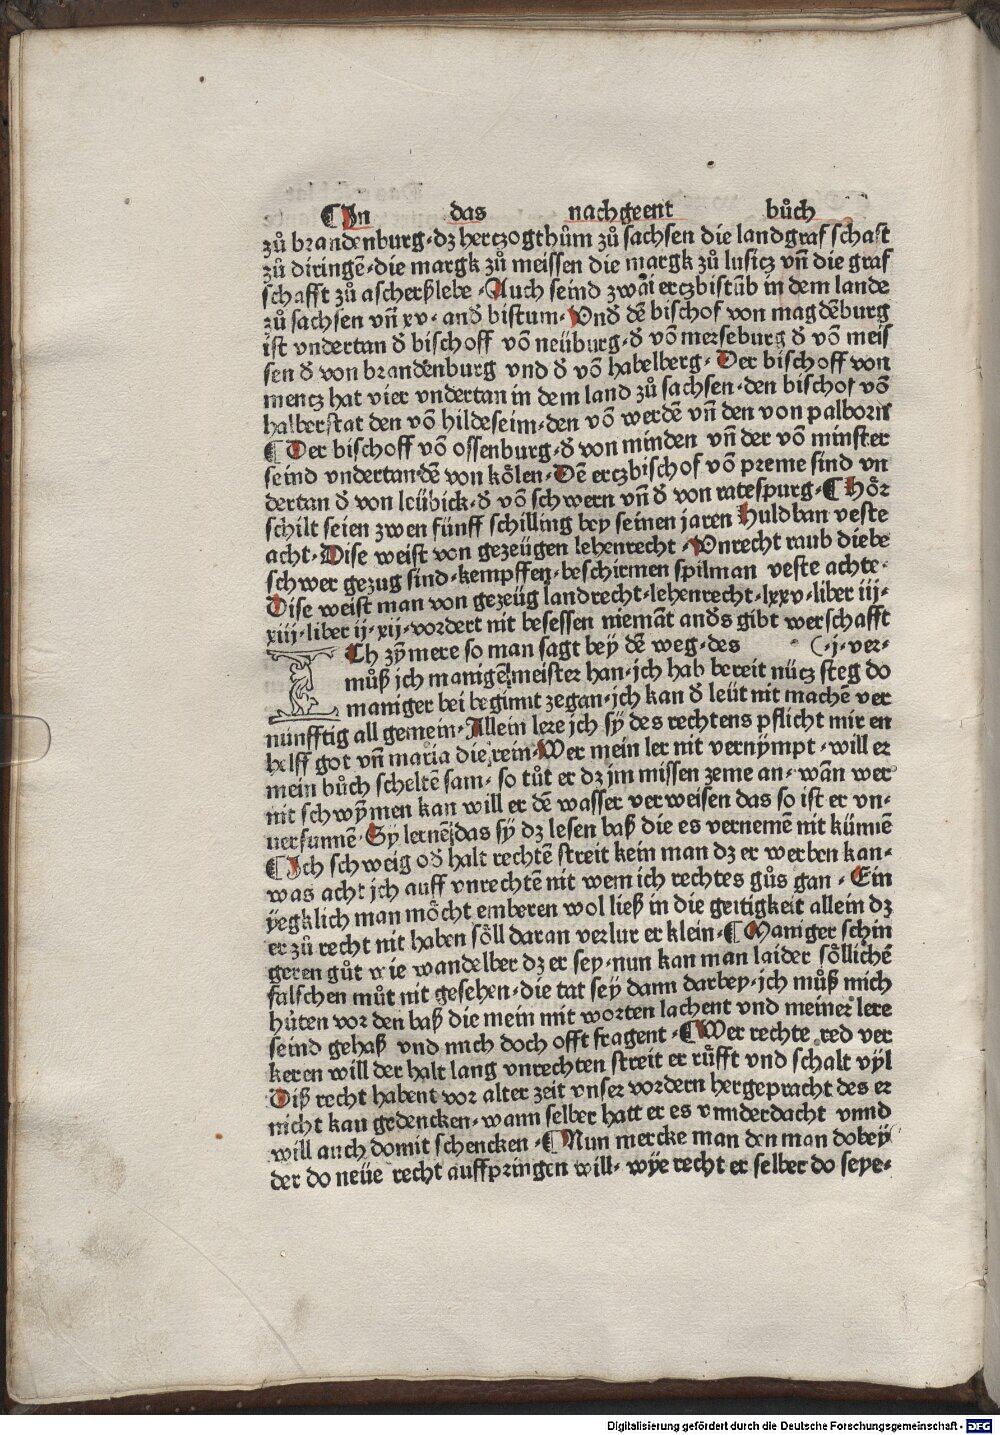 ¶In das nachgeent bůch
zů brandenburg·dz hertzogthům zů sachsen die landgraf schaft
zů diringē·die margk zů meissen die margk zů lusicz vn̄ die graf
schafft zů ascherßlebe·Auch seind zwai ercztbistūb in dem lande
zů sachsen vn̄ xv·and̄ bistum·Vnd̄ dē bischof von magdēburg
ist vndertan d̄ bischoff vō neüburg·d̄ vō merseburg d̄ vō meis
sen d̄ von brandēburg vnd d̄ vō habelberg·Der bischoff von
mentz hat vier vndertan in dem land zů sachsen·den bischof vō
halberstat den vō hildeseim·den vō werdē vn̄ den von palborn
¶Der bischoff vō ossenburg·d̄ von minden vn̄ der vō minster
seind vndertan·dē von kölen·Dē ercztbischof vō preme sind vn
dertan d̄ von leübick·d̄ vō schwern vn̄ d̄ von ratespurg·¶Hör
schilt seien zwen fünff schilling bey seinen jaren Huld ban veste
acht·Dise weist von gezeügen lehenrecht·Vnrecht raub diebe
schwer gezug sind·kempffen·beschirmen spilman veste achte·
Dise weist man von gezeüg landrecht·lehenrecht·lxxv·liber iij·
xiij·liber ij·xij·vordert nit besessen niemāt and̄s gibt werschafft
ICh zȳmere so man sagt bey dē weg·des (·j·ver·
můß jch manigē meister han·jch hab bereit nücz steg do
maniger bei beginnt zegan·jch kan d̄ leüt nit machē ver
nünfftig all gemein·Allein lere jch sÿ des rechtens pflicht mir en
helff got vn̄ maria die rein·Wer mein ler nit vernÿmpt·will er
mein bůch scheltē sam·so tůt er dz jm missen zeme an·wān wer
nit schwȳmen kan will er dē wasser verweisen das so ist er vn·
uersunnē·Sÿ lernē das sÿ dz lesen baß die es vernemē nit künnē
¶Ich schweig od̄ halt rechtē streit kein man dz er werben kan·
was acht jch auff vnrechtē nit wem ich rechtes gůs gan·Ein
ÿegklich man möcht emberen wol ließ in die geitigkeit allein dz
er zů recht nit haben söll daran verlur er klein·¶Maniger schin
geren gůt wie wandelber dz er sey·nun kan man laider söllichē
falschen můt nit gesehen·die tat sey dann darbey·jch můß mich
hůten vor den baß die mein mit worten lachent vnd meiner lere
seind gehaß vnd mich doch offt fragent·¶Wer rechte red ver
keren will der halt lang vnrechten streit er růfft vnd schalt vÿl
Diß recht habent vor alter zeit vnser vordern hergepracht des er
nicht kan gedencken·wann selber hatt er es vnnderdacht vnnd
will auch domit schencken·¶Nun mercke man den man dobeÿ
der do neüe recht auffpringen will·wÿe recht er selber do seye·
Digitalisierung gefördert durch die Deutsche Forschungsgemeinschaft - DFG